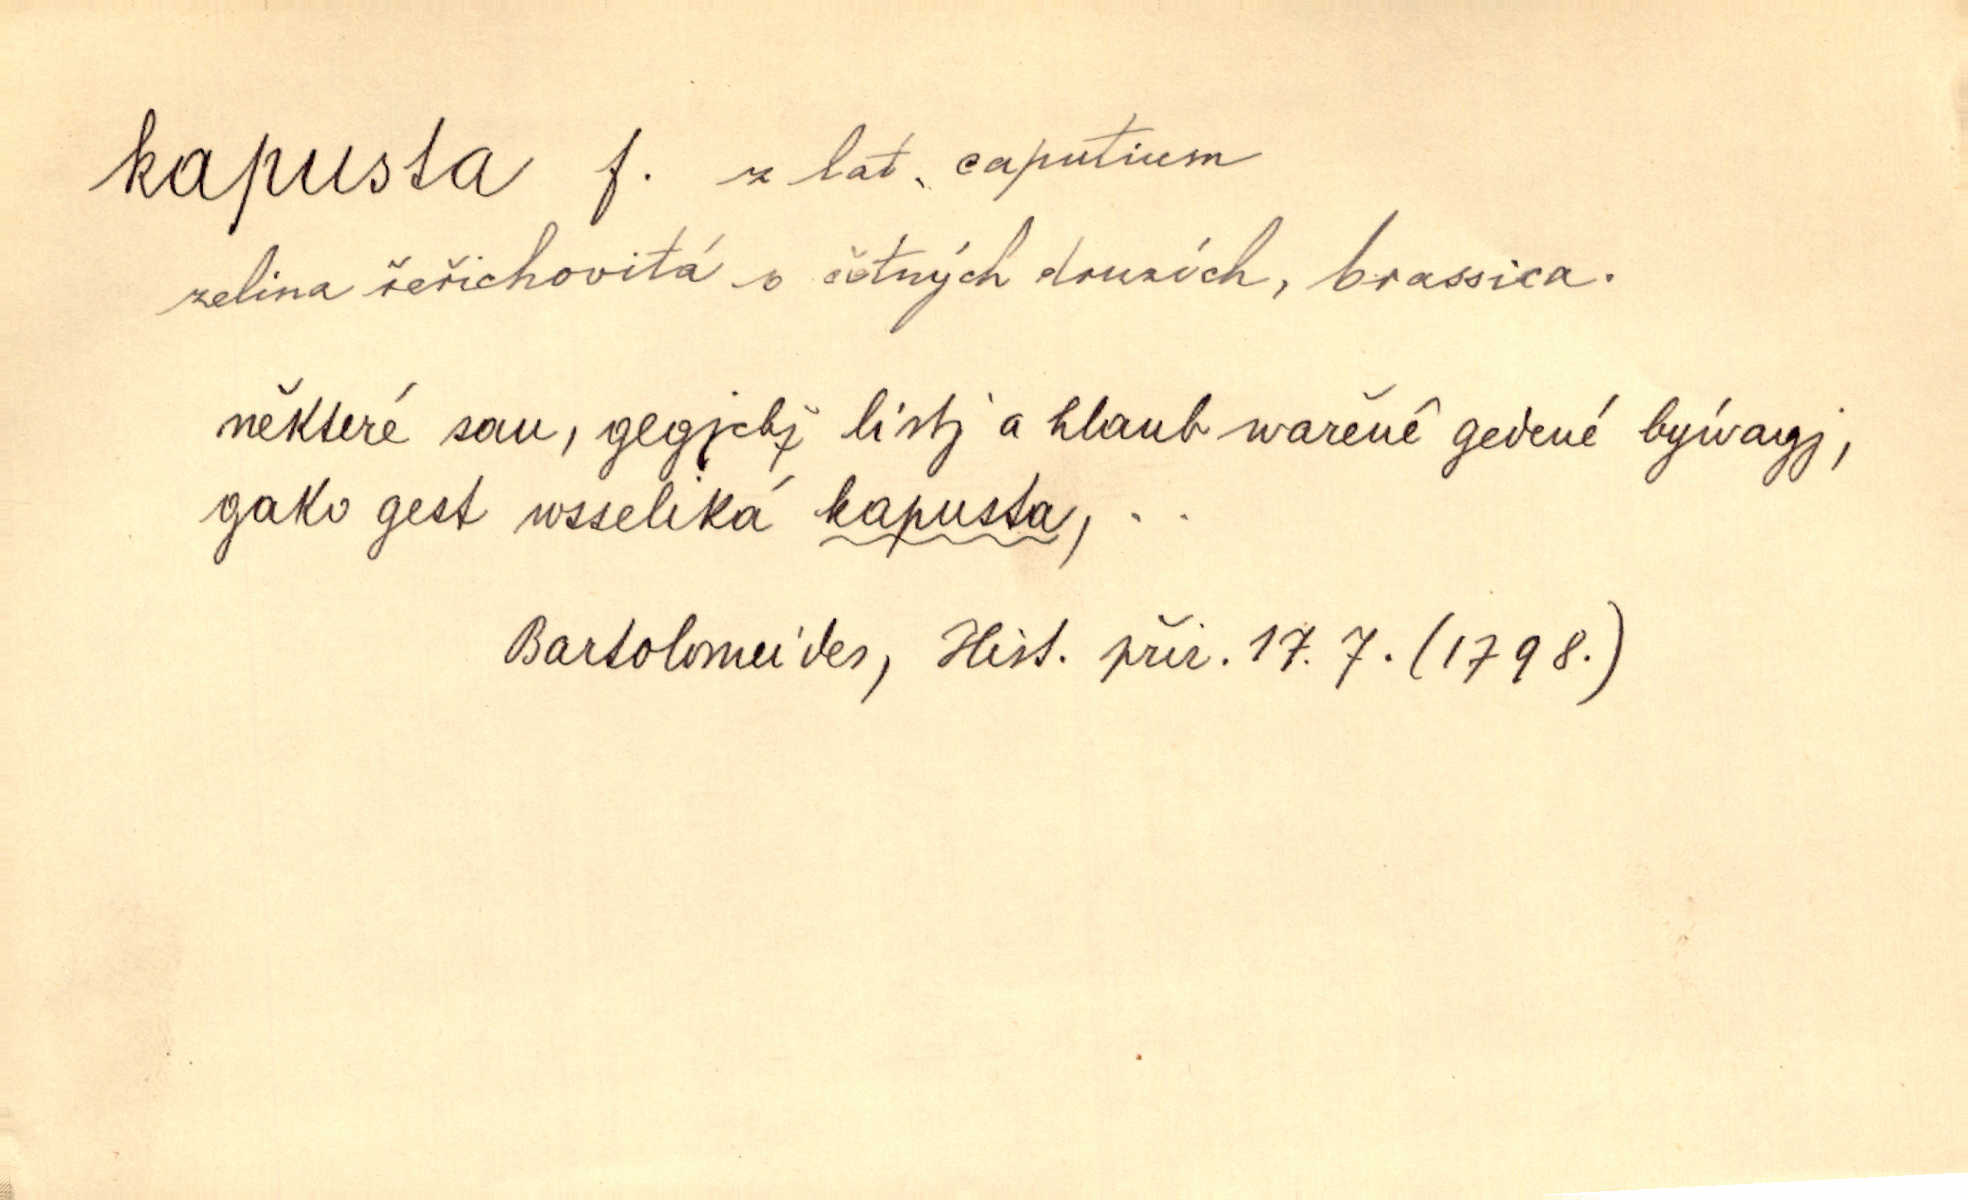 kapusta f. z lat. caputium
zelina řeřichovitá o četných druzích, brassica.
některé sau, gegjchž listj a hlaub wařené gedené býwagj,
gako gest wsseliká kapusta, . .
Bartolomeides, Hist. přir. 17. 7. (1798.)